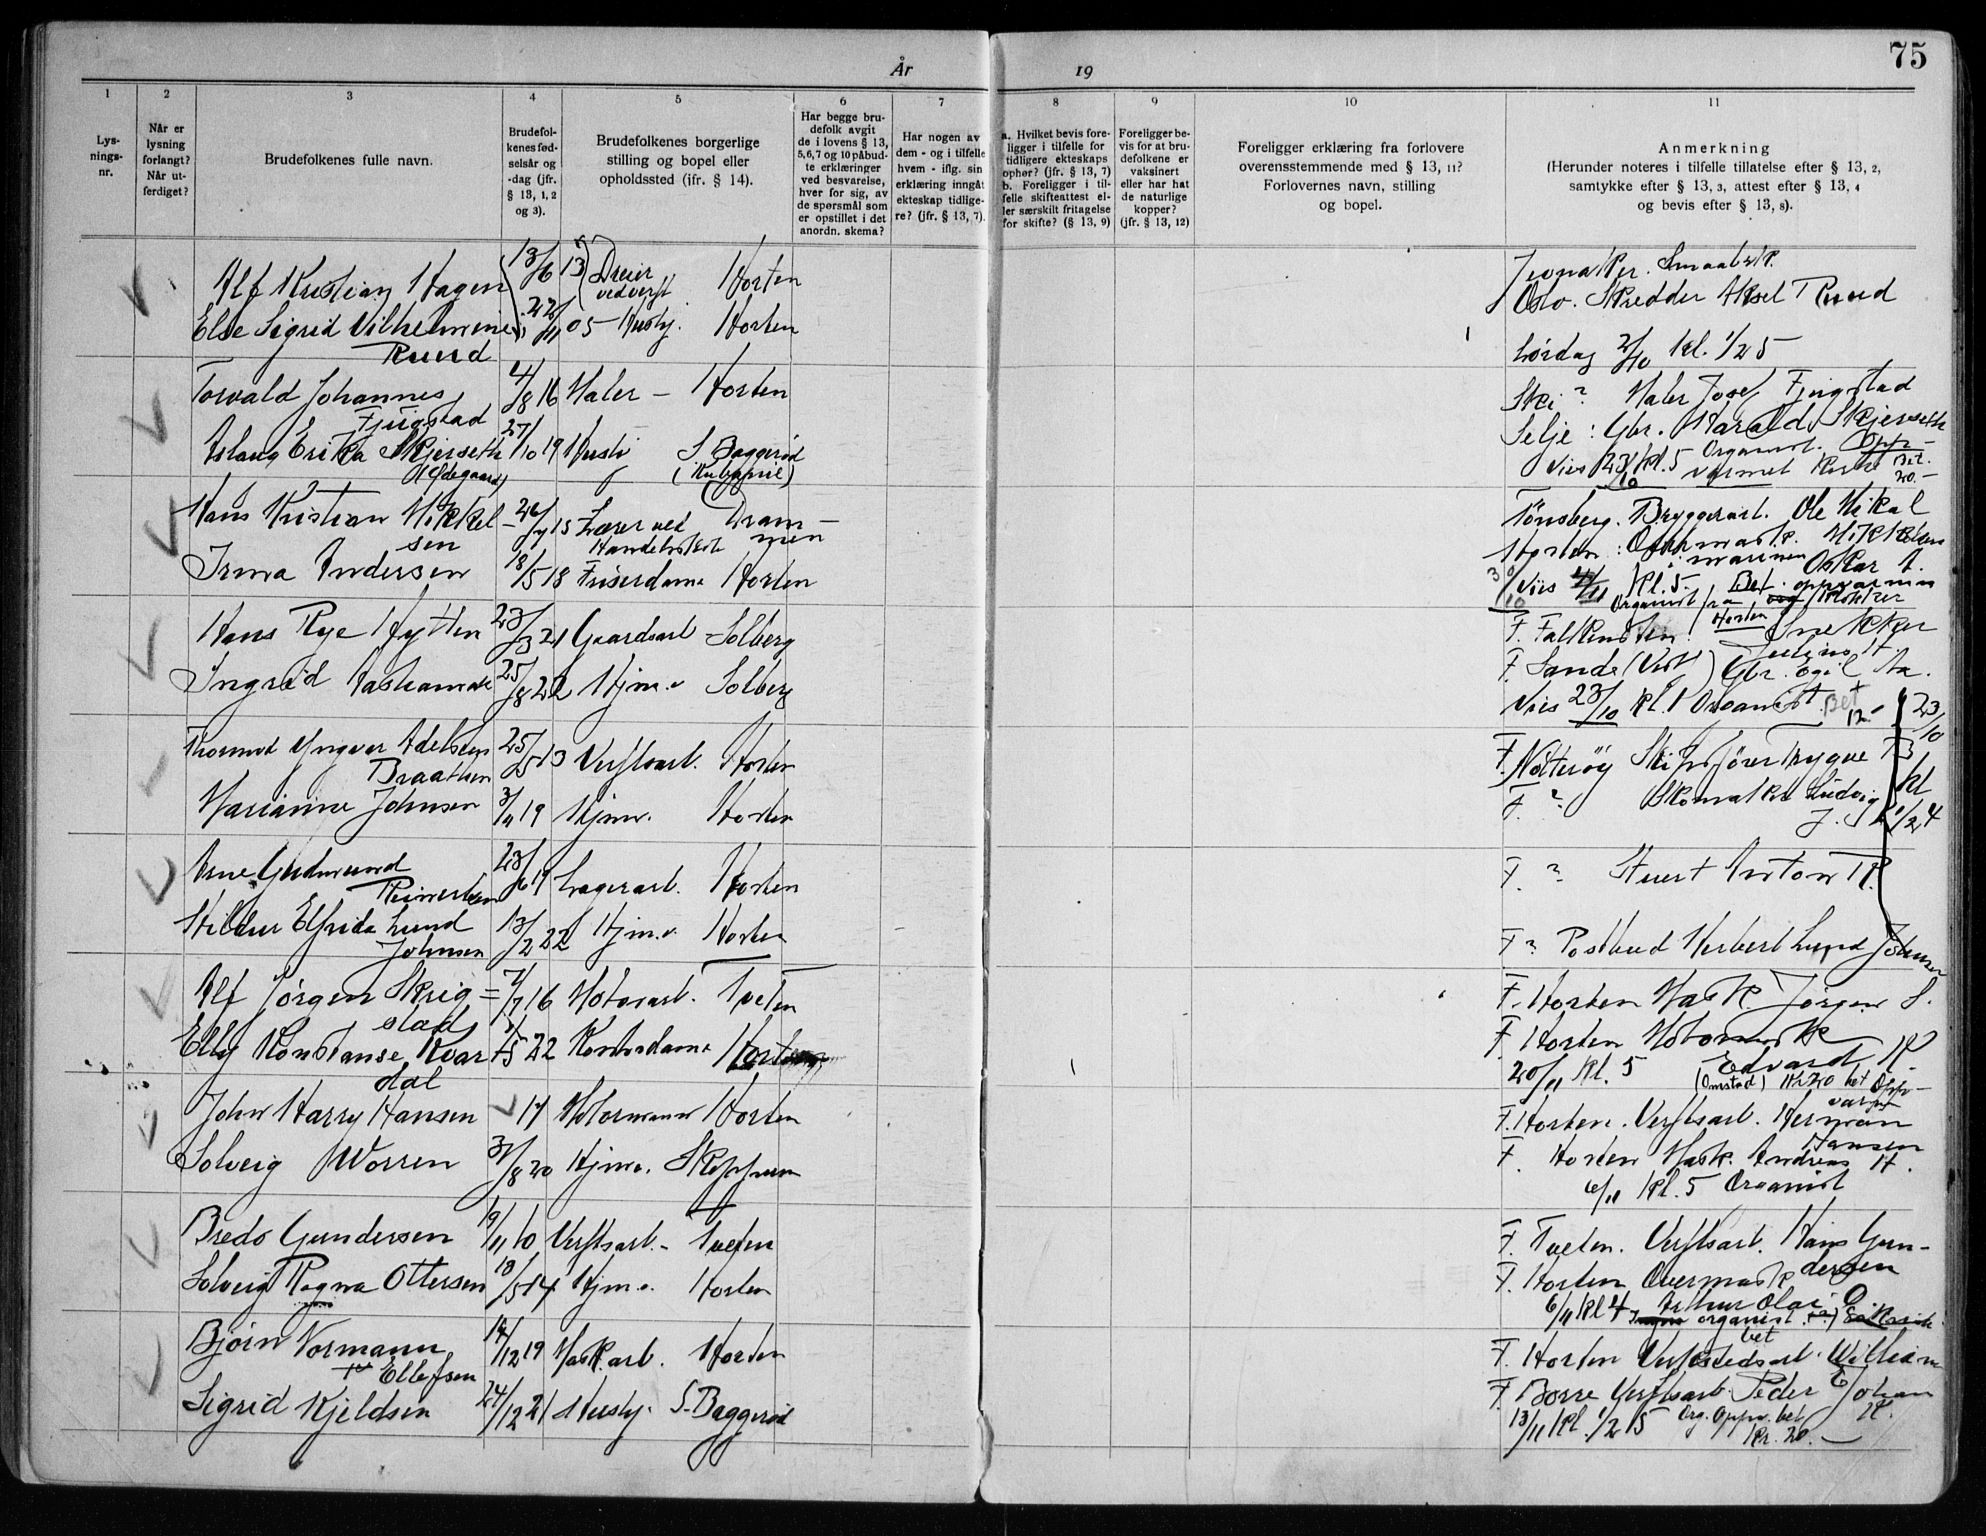 75
År 19
1 2 3 4 5 6 7 8 9 10 11
Lys-
nings-
nr.
Når er
lysning
forlangt?
Når ut-
ferdiget?
Brudefolkenes fulle navn.
Brudefol-
kenes fød-
selsår og
-dag (jfr.
§ 13, 1, 2
og 3).
Brudefolkenes borgerlige
stilling og bopel eller
opholdssted (ifr. § 14).
Har begge bru-
defolk avgit
de i lovens § 13,
5,6,7 og 10 påbud-
te erklæringer
ved besvarelse,
hver for sig, av
de spørsmål som
er opstillet i det
anordn. skema?
Har nogen av
dem - og i tilfelle
hvem - iflg. sin
erklæring inngåt
ekteskap tidlige-
re? (jfr. § 13, 7).
a. Hvilket bevis fore-
ligger i tilfelle for
tidligere ekteskaps
ophør? (jfr. § 13, 7)
b. Foreligger i til-
felle skifteattest el-
ler særskilt fritagelse
for skifte? (§ 13, 9)
Foreligger be-
vis for at bru-
defolkene er
vaksinert
eller har hat
de naturlige
kopper?
(jfr. § 13, 12)
Foreligger erklæring fra forlovere
overensstemmende med § 13, 11?
Forlovernes navn, stilling
og bopel.
Anmerkning
(Herunder noteres i tilfelle tillatelse efter § 13, 2,
samtykke efter § 13, 3, attest efter § 13, 4
og bevis efter § 13, 8).
Alf Kristian Hagen 13/6 13 Dreier Horten
ved verft
Else Sigrid Vilhelmine 22/11 05 Husby. Horten
Ruud
Oslo. Skredder Aksel Ruud
Lørdag 2/10 kl. 1/2 5
Torvald Johannes 4/8 16 Maler - Horten
Fjugstad
Aslaug Erika Skjerseth 27/10 19 Husb S. Baggerød
(Ødegaard)
Ski ? Maler Josef Fjugstad
Selje : Gbr. Harald Skjerseth
Vies 23/10 kl. 5 Organist. Opp-
varmet Kirke Bet.
20.-
Hans Kristian Mikkel- 26/7 15 Lærer ved Dram-
sen Handelsskol men
Irma Andersen 18/5 18 Friserdame Horten
Tønsberg. Bryggeriarb. Ole Mikal
Mikkelsen
Horten :
i marinen Oskar A.
30/10 Vies 4/11 kl. 5. Bet.
Organist fra
Horten
Hans Rye Hytten 23/3 21 Gaardsarb Solberg
Ingrid 25/8 22 Hjm.v Solberg
F. Falkensten : Snekker
F. Sande (Vestf) Gbr. Egil Aa.
Vies 23/10 kl. 1 Organist Bet
12.-
Thormod Yngvar Adelsten 25/5 13 Verftsarb. Horten
Braathen
Marianne Johnsen 3/11 19 Hjmv. Horten
23/10
kl
1/2 4
F. Nøtterøy Skipsfører Trygve B
F. ? Skomaker Ludvig
J.
Arne Gudmund 23/6 19 Lagerarb. Horten
Reinertsen
Hildur Elfrida Lund 13/2 22 Hjm.v. Horten
Johnsen
F. ? Stuert Anton R.
F ? Postbud Herbert Lund Johnsen
Alf Jørgen Skrig= 7/7 16 Motorarb. Tveten
stad
Elly Konstanse Kvar 1/5 22 Kontordame Horten
dal
F. Horten Mask Jørgen S.
F. Horten
Edvard K
20/11 kl. 5 (Omstad) Kr 20 bet Opp-
varm
John Harry Hansen 17 Motormann Horten
Solveig Worren 31/8 20 Hjmv. Skoppum
F. Horten. Verftsarb. Herman
Hansen
F. Horten Mask. Andreas H.
6/11 kl. 5 Organist
Bredo Gundersen 19/11 10 Verftsarb.- Tveten
Solveig Ragna Ottersen 18/5 14 Hjm.v. Horten
F. Tveten. Verftsarb. Hans Gun-
dersen
F. Horten Overmask
Arthur Olai O
6/11 kl 4 organist
bet
Bjørn Normann 14/12 19 Maskarb. Horten
Ellefsen
Sigrid Kjeldsen 24/12 21 Husby. S. Baggerød
F. Horten Verkstedsarb. William
E
F. Borre Verftsarb. Peder Johan
K.
13/11 kl. 1/2 5 Org. Oppv. bet
Kr. 20.-